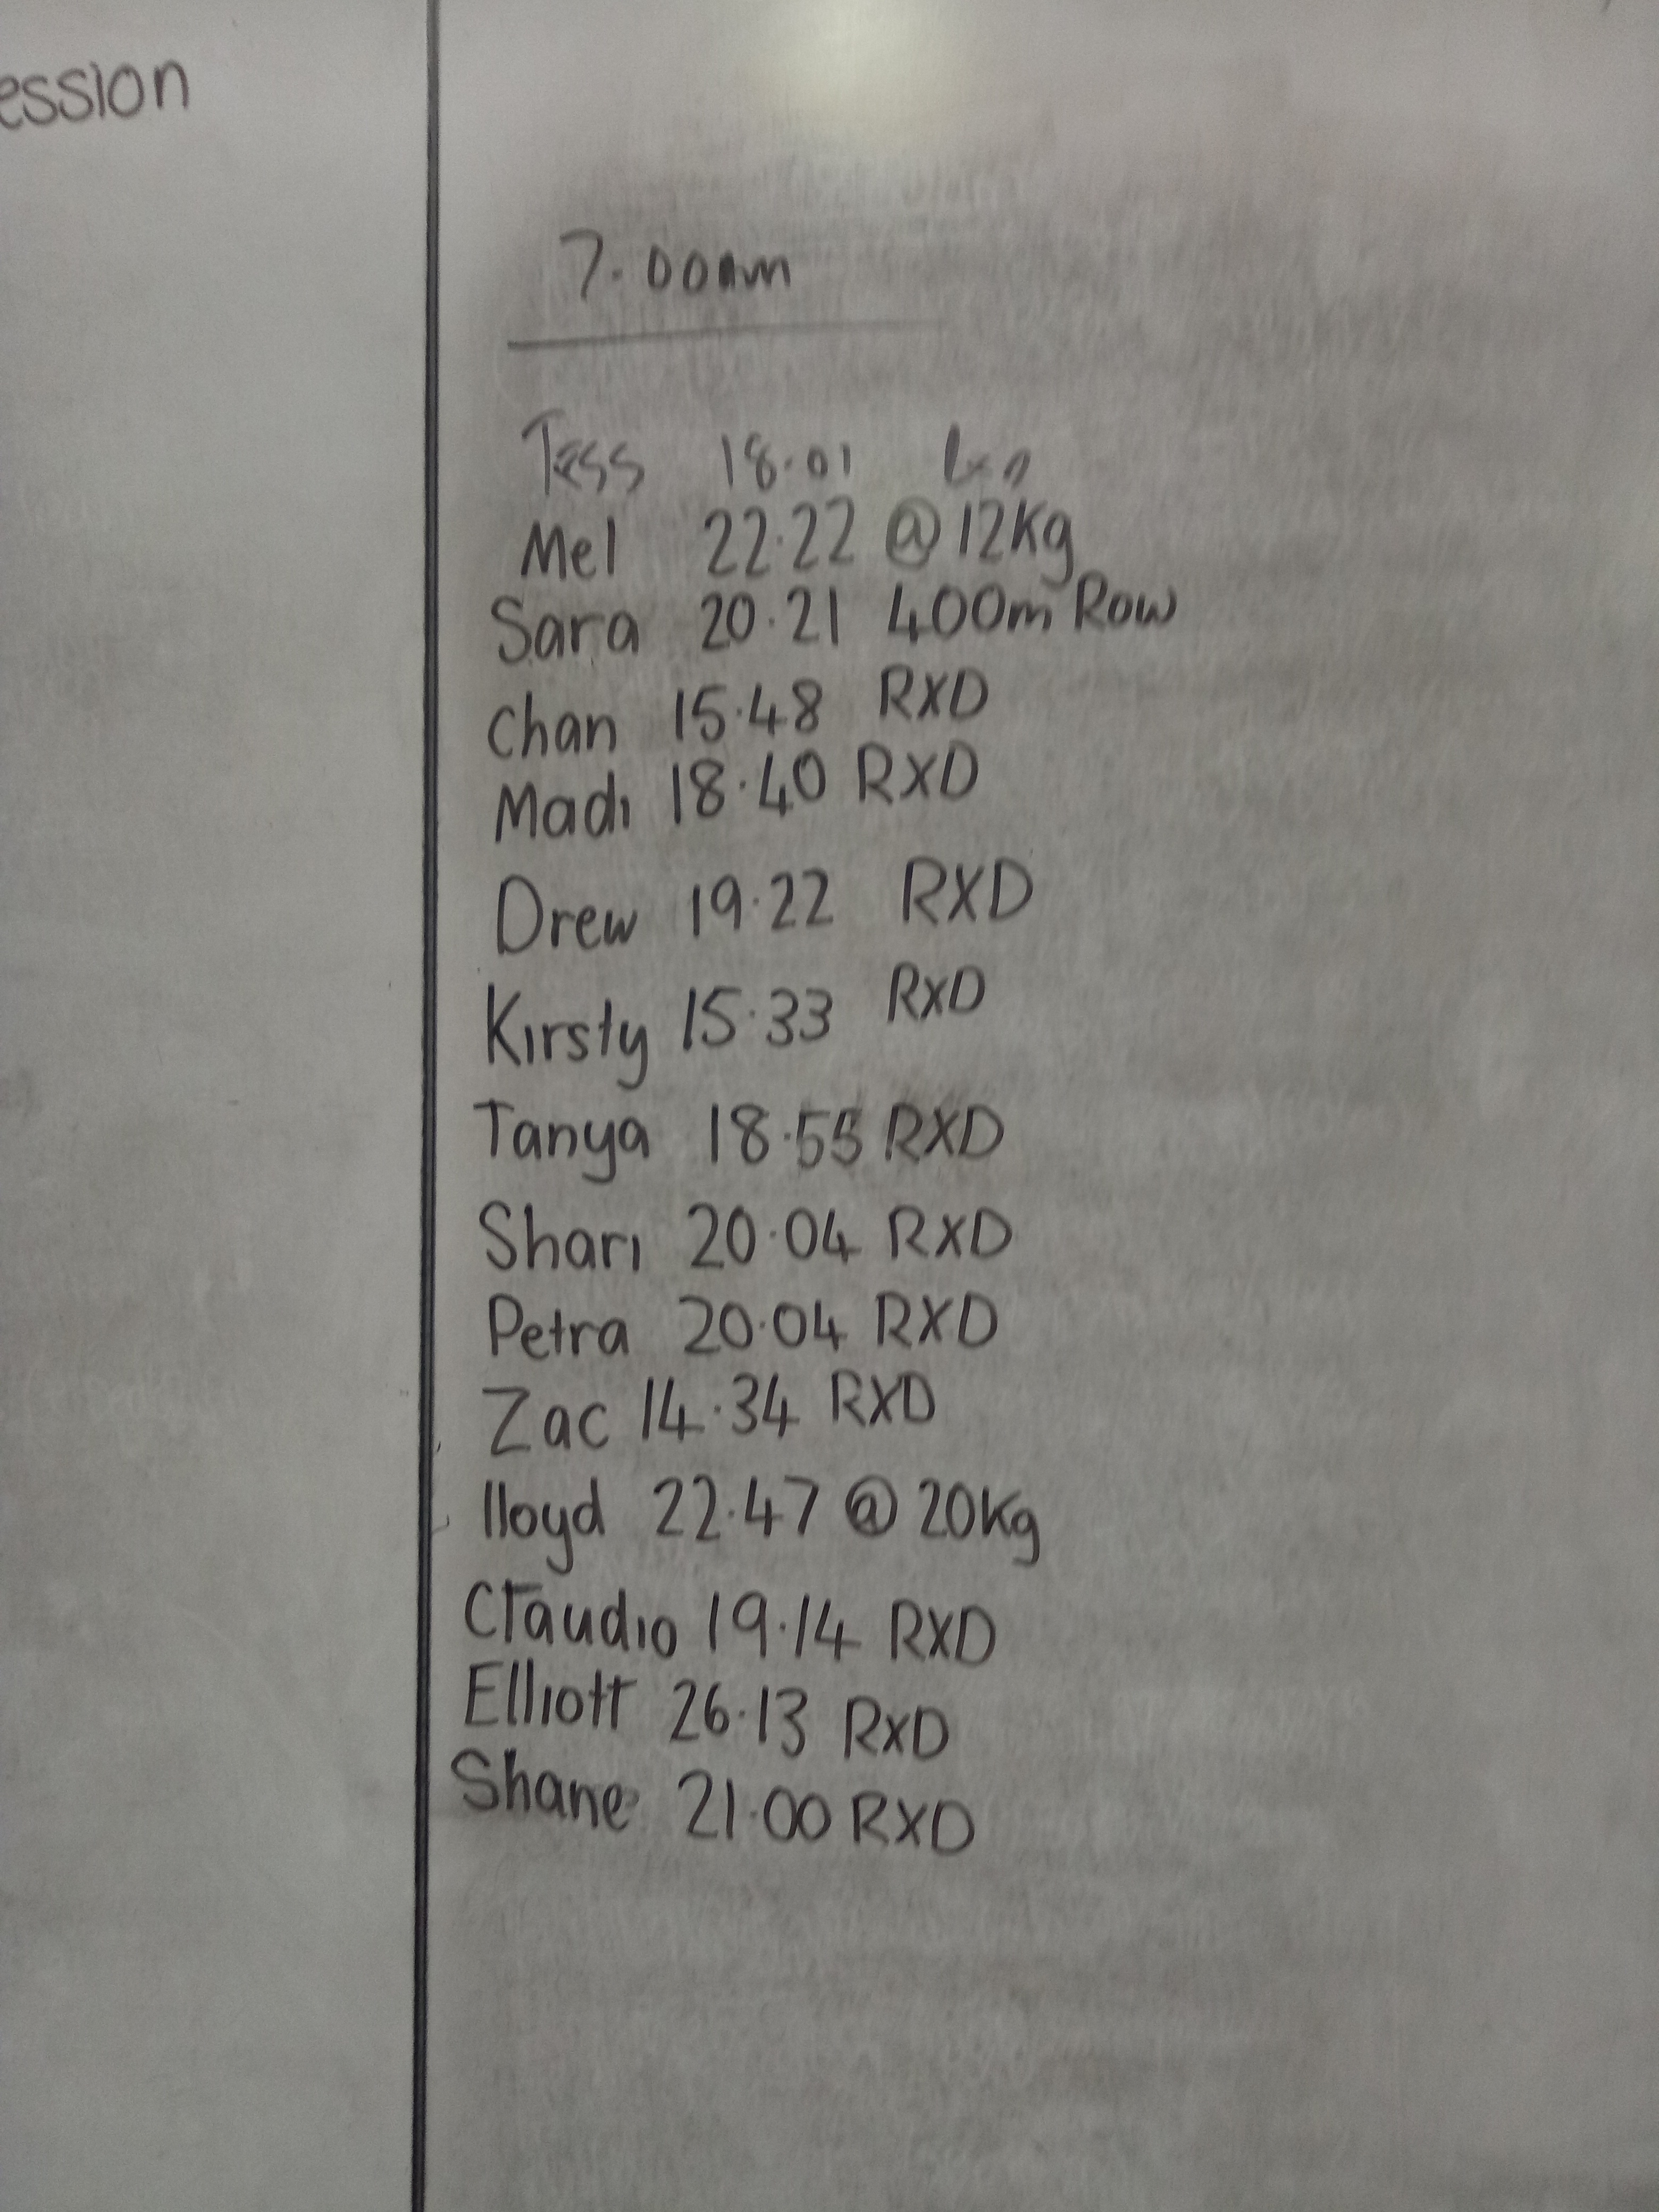 ession
7.00am
Tess 18.01
Mel 22.22 @ 12Kg
Sara 20.21 400m Row
Chan 15.48 RXD
Madi 18.40 RXD
Drew 19.22 RXD
Kirsty 15.33 RXD
Tanya 18.55 RXD
Shari 20.04 RXD
Petra 20.04 RXD
Zac 14.34 RXD
lloyd 22.47 @ 20Kg
Claudio 19.14 RXD
Elliott 26.13 RXD
Shane 21.00 RXD